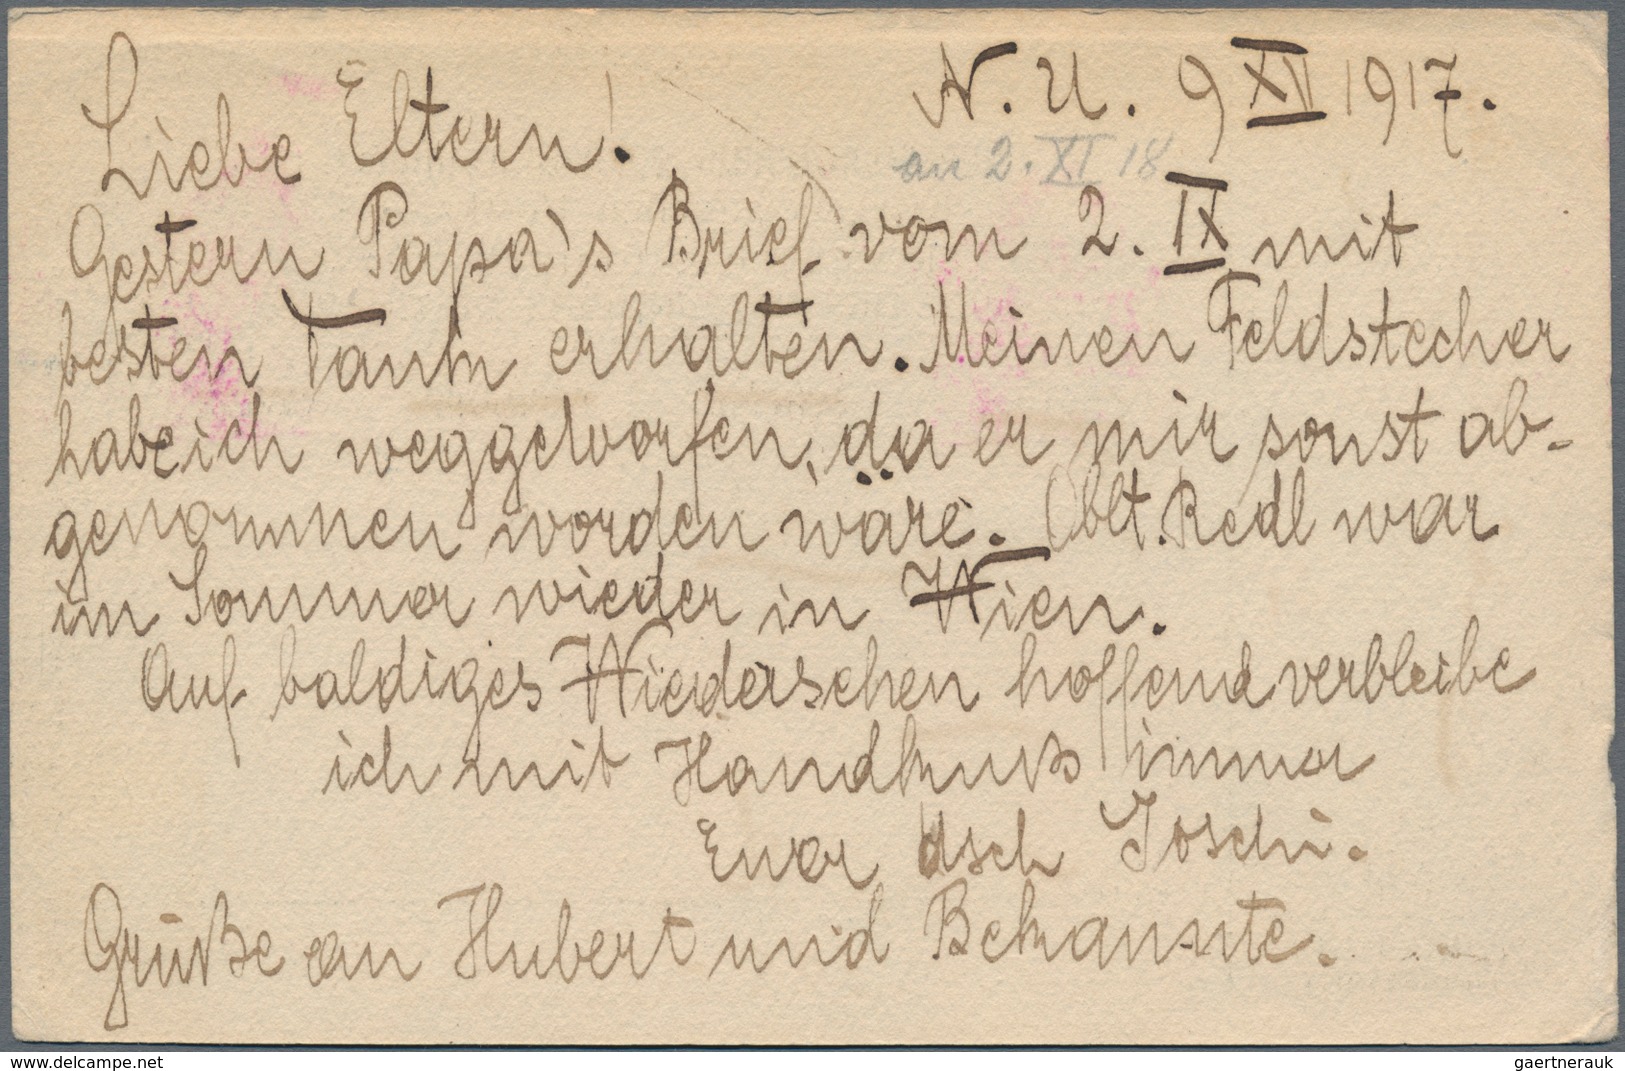 N. U. 9 XII 1917.
Liebe Eltern!
an 2. XI 18
Gestern Papa's Brief vom 2. IX mit
besten Dank erhalten. Meinen Feldstecher
habe ich weggeworfen, da er mir sonst ab-
genommen worden wäre. Oblt. Redl war
im Sommer wieder in Wien.
Auf baldiges Wiedersehen hoffend verbleibe
ich mit Handkuß immer
Euer dsch Joschi.
Grüße an Hubert und Bekannte.
www.delcampe.net
gaertnerauk